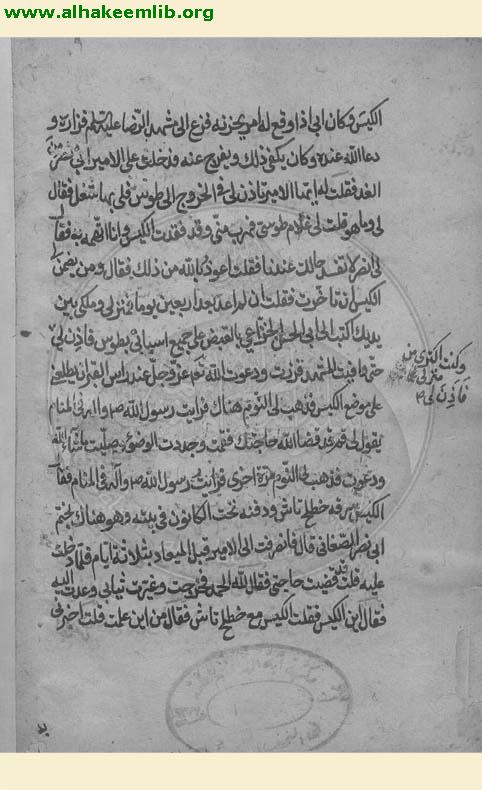 www.alhakeemlib.org
الكيس وكان ابي اذا وقع له امر يحزنه فزع الى مشهد الرضا عليه السلم فزاره و
دعا الله عنده وكان يكفى ذلك ويفرج عنه فدخلت على الامير ابي نصر من
الغد فقلت له ايها الامير تاذن لى فى الخروج الى طوس فلى بها شغل فقال
لى وما هو قلت لى غلام طوسى فهرب منى وقد فقدت الكيس وانا اتهمه به فقال
لى انظر لا تفسد حالك عندنا فقلت اعوذ بالله من ذلك فقال ومن يضمن
الكيس ان تاخرت فقلت ان لم اعد بعد اربعين يوما فمنزلى وملكى بين
يديك اكتب الى ابى الحسن الخزاعي بالقبض على جميع اسبابى بطوس فاذن لى
حتى وافيت المشهد فزرت ودعوت الله عز وجل عند راس القبر ان يطلعنى
على موضع الكيس فذهب بى النوم هناك فرايت رسول الله ص واله فى المنام
يقول لى قم فقد قضا الله حاجتك فقمت وجددت الوضوء وصليت ماشاء الله
ودعوت فذهب بى النوم مرة اخرى فرايت رسول الله ص واله فى المنام فقال
الكيس سرقه خطلخ تاش ودفنه تحت الكانون فى بيته وهو هناك بختم
ابى نصر الصغانى قال فانصرفت الى الامير قبل الميعاد بثلاثة ايام فلما دخلت
عليه قلت قد قضيت حاجتى فقال الحمد لله فخرجت وغيرت ثيابى وعدت اليه
فقال اين الكيس فقلت الكيس مع خطلخ تاش فقال من اين علمت فقلت اخبرنى
وكنت اكترى من
منزلى
فاذن لى